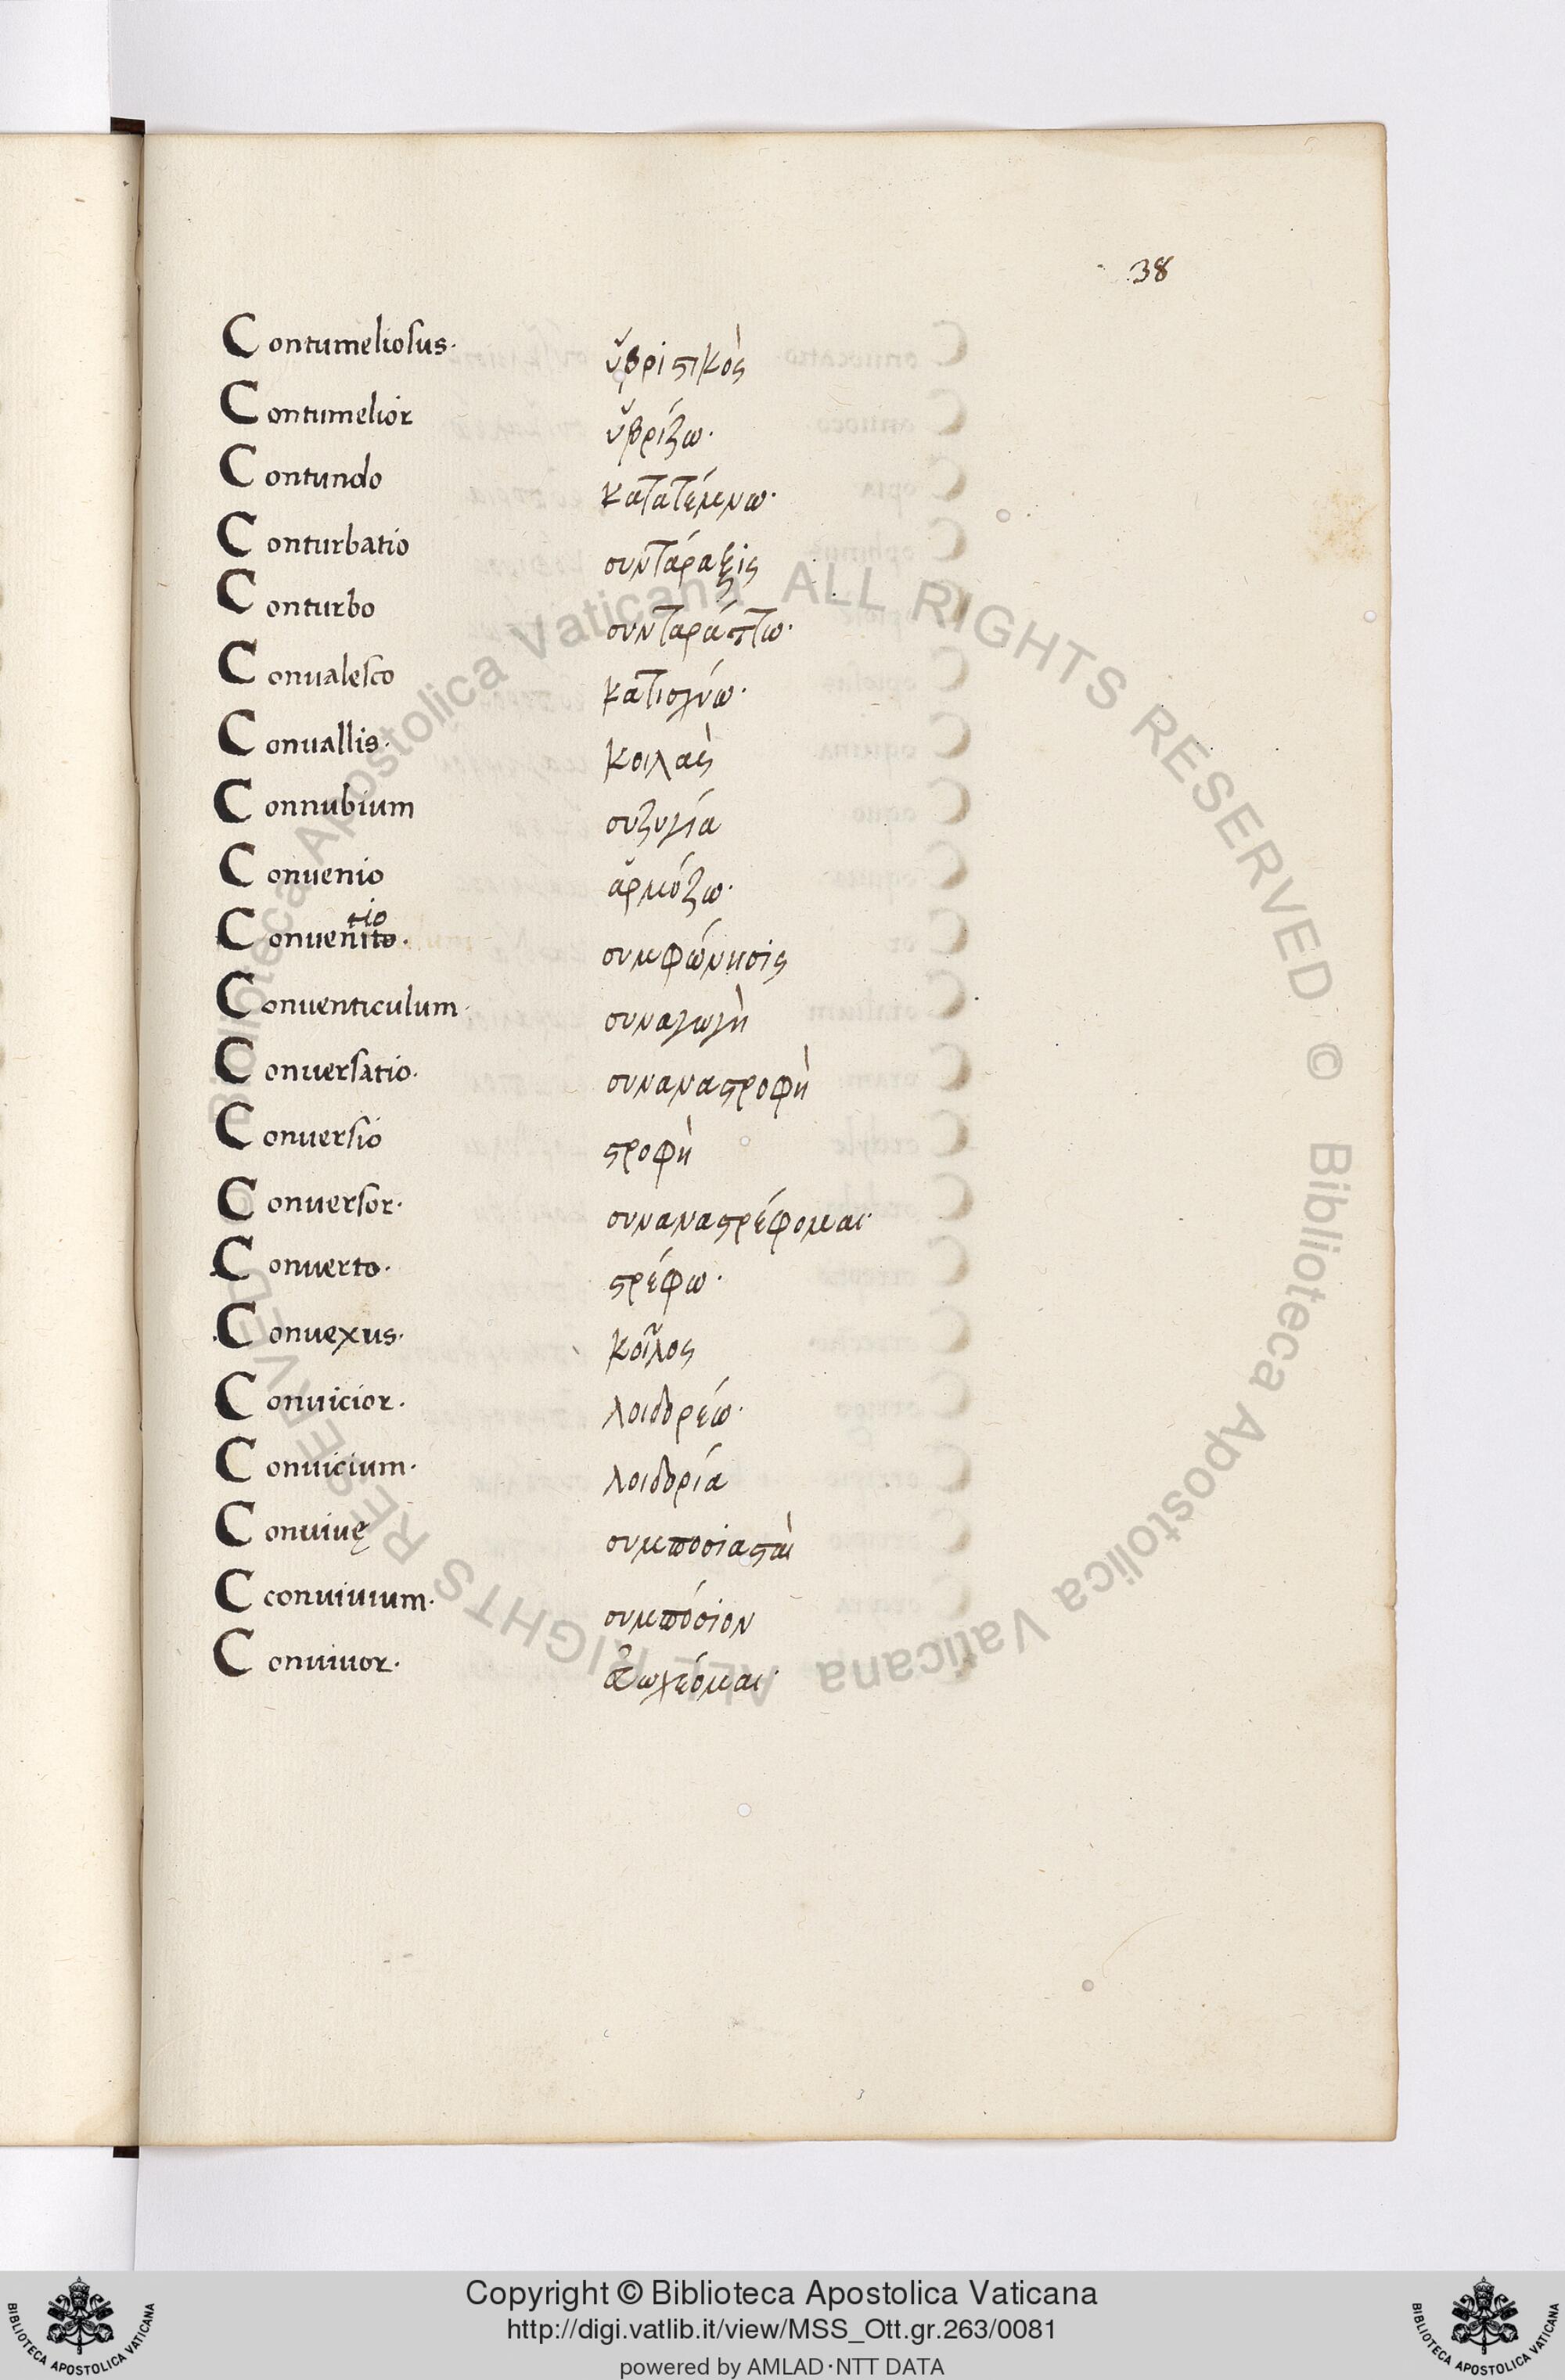 38
Contumeliosus· ὑβριστικὸς
Contumelior ὑβρίζω·
Contundo κατατέμνω·
Conturbatio συντάραξις
Conturbo συνταράττω·
Conualesco κατισχύω·
Conuallis· κοιλὰς
Connubium συζυγία
Conuenio ἁρμόζω·
tio
Conuenito· συμφώνησις
Conuenticulum· συναγωγὴ
Conuersatio· συναναστροφὴ
Conuersio στροφὴ
Conuersor· συναναστρέφομαι·
Conuerto· στρέφω·
Conuexus· κοῖλος
Conuicior· λοιδορέω·
Conuicium· λοιδορία
Conuiuę συμποσιασταὶ
Cconuiuium· συμπόσιον
Conuiuor· εὐωχέομαι·
Biblioteca Apostolica Vaticana ALL RIGHTS RESERVED © Biblioteca Apostolica Vaticana ALL RIGHTS RESERVED ©
Copyright © Biblioteca Apostolica Vaticana
http://digi.vatlib.it/view/MSS_Ott.gr.263/0081
powered by AMLAD·NTT DATA
BIBLIOTECA APOSTOLICA VATICANA
BIBLIOTECA APOSTOLICA VATICANA